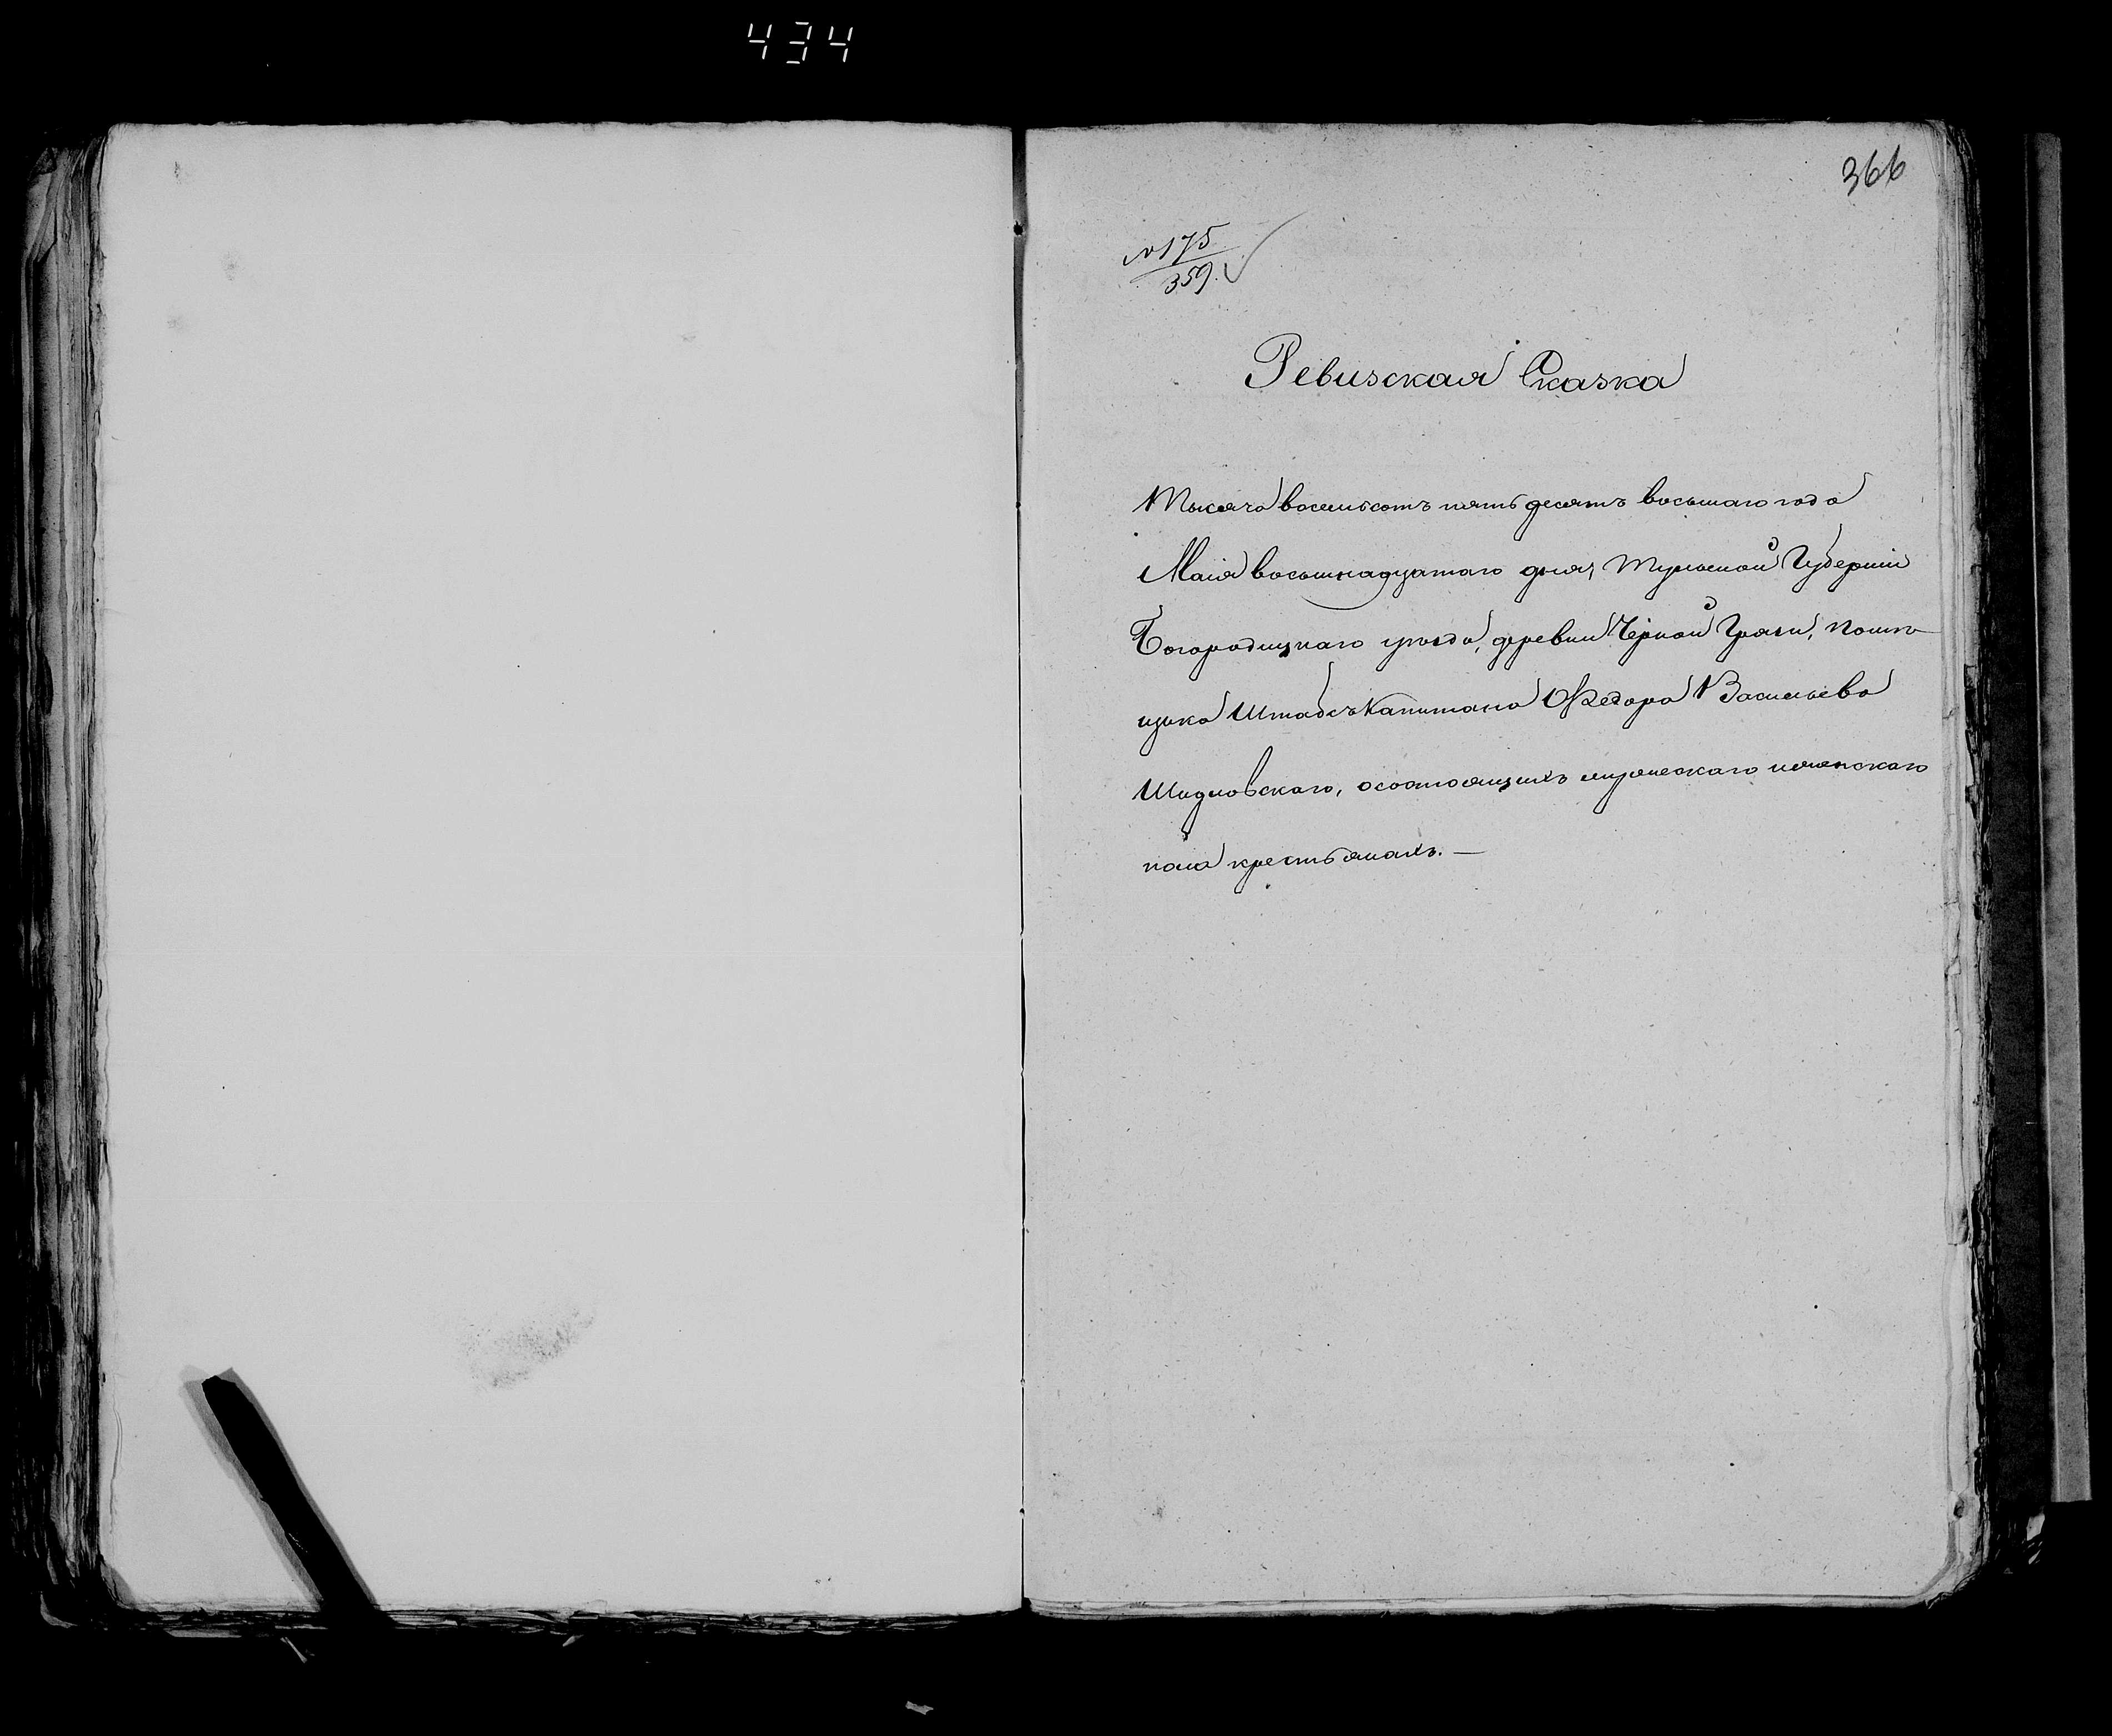 434
366
№175
359.
Ревизская Сказка
Тысяча восемьсотъ пятьдесятъ восьмаго года
Маія восьмнадцатаго дня, Тульской Губерніи
Богородицкаго уѣзда, деревни Черной Грязи, помѣ-
щика Штабсъ Капитана Ѳедора Васильева
Шидловскаго, о состоящихъ мужескаго и женскаго
пола крестьянахъ. —